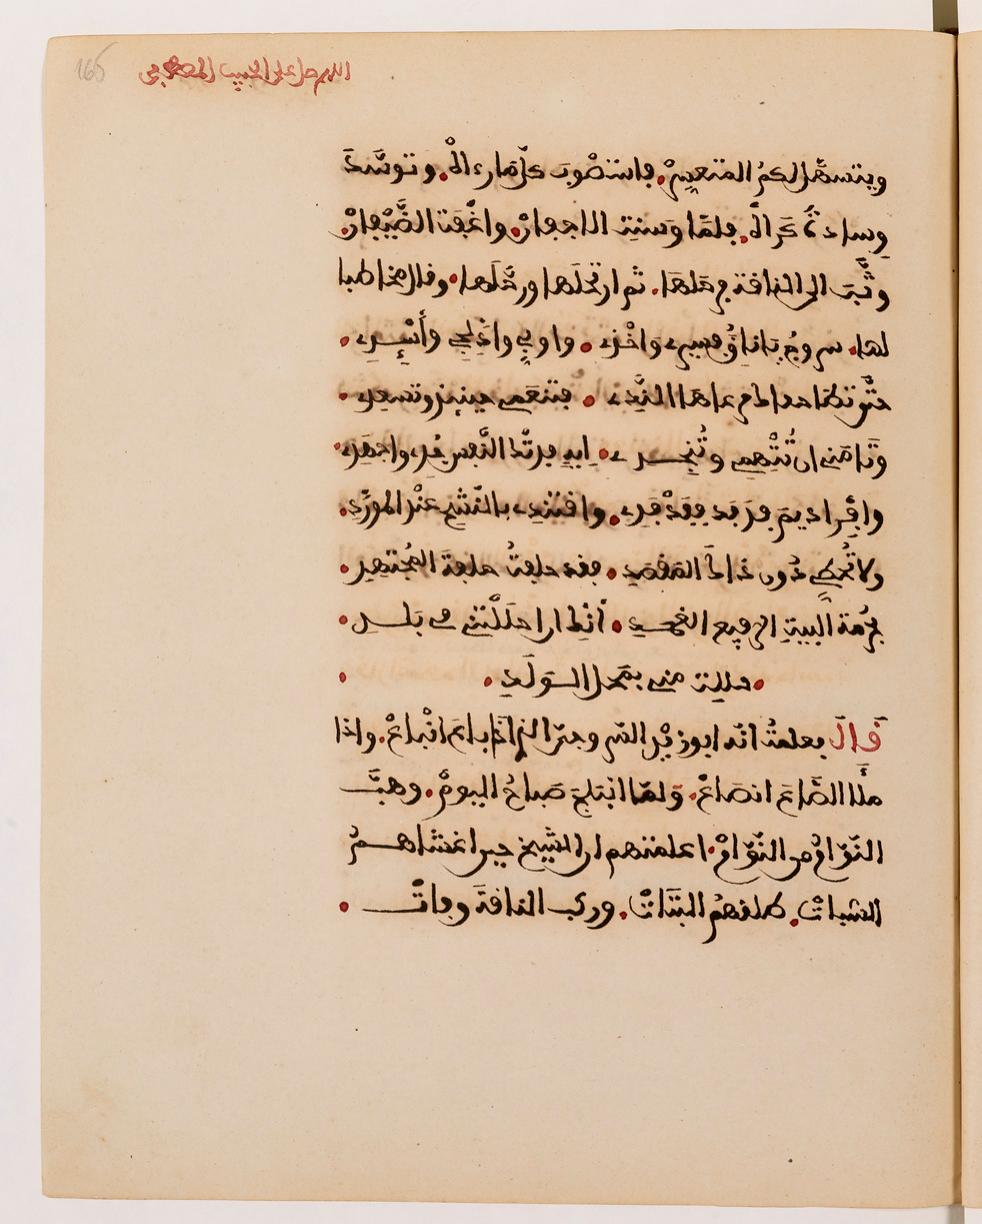 165
اللهم صل على الحبيب المصطفى
ويتسهّل لكمُ المتعسِّرْ. فاستصْوبَ كلٌّ ما رءالْ. وتوسَّدَ
وِسادةَ كَرالْ. فلمّا وَسَنتِ الاجفانْ. واغْفَتِ الضِّيفانْ.
وثَبَ الى الناقة فرحلَها. ثم ارتحلَها ورحَّلَها. وقال مخاطبا
لها. سروجُ يا ناقُ فسيرى وخْدى. واوبى وادْلجى وأَسْئِدى.
حتّى تطا خفاكِ مرعاها النّدى. فتنعَمى حينئذ وتسعدى.
وتامَنى ان تُتْهِمى وتُنجدى. ايهِ فدتْكِ النّفس جِدّى واجهدى.
وافْرى اديمَ فدفَد ففدْفدِ. واقتنعى بالنّشْح عند المَورِدِ.
ولا تَحُطّى دُون ذاكَ المَقصدِ. فقد حلفتُ حلفةَ المُجتهدِ.
بحُرمة البيتِ الرفيع العُمُدِ. انّكِ ان احللْتنى فى بَلدى.
حللتِ منى بمَحل الولَدِ.
قالَ فعلمتُ انّه ابو زيْد السّروجىّ الذى اذا باعَ انْباعْ. واذا
ملَا الصّاعَ انصاعْ. ولمّا انبلجَ صَباحُ اليومْ. وهبَّ
النّوّامُ من النّوْمْ. اعلمتهم ان الشيخ حين اغشاهمُ
السّباتْ. طلقهمُ البَتاتْ. وركب الناقةَ وفاتْ.